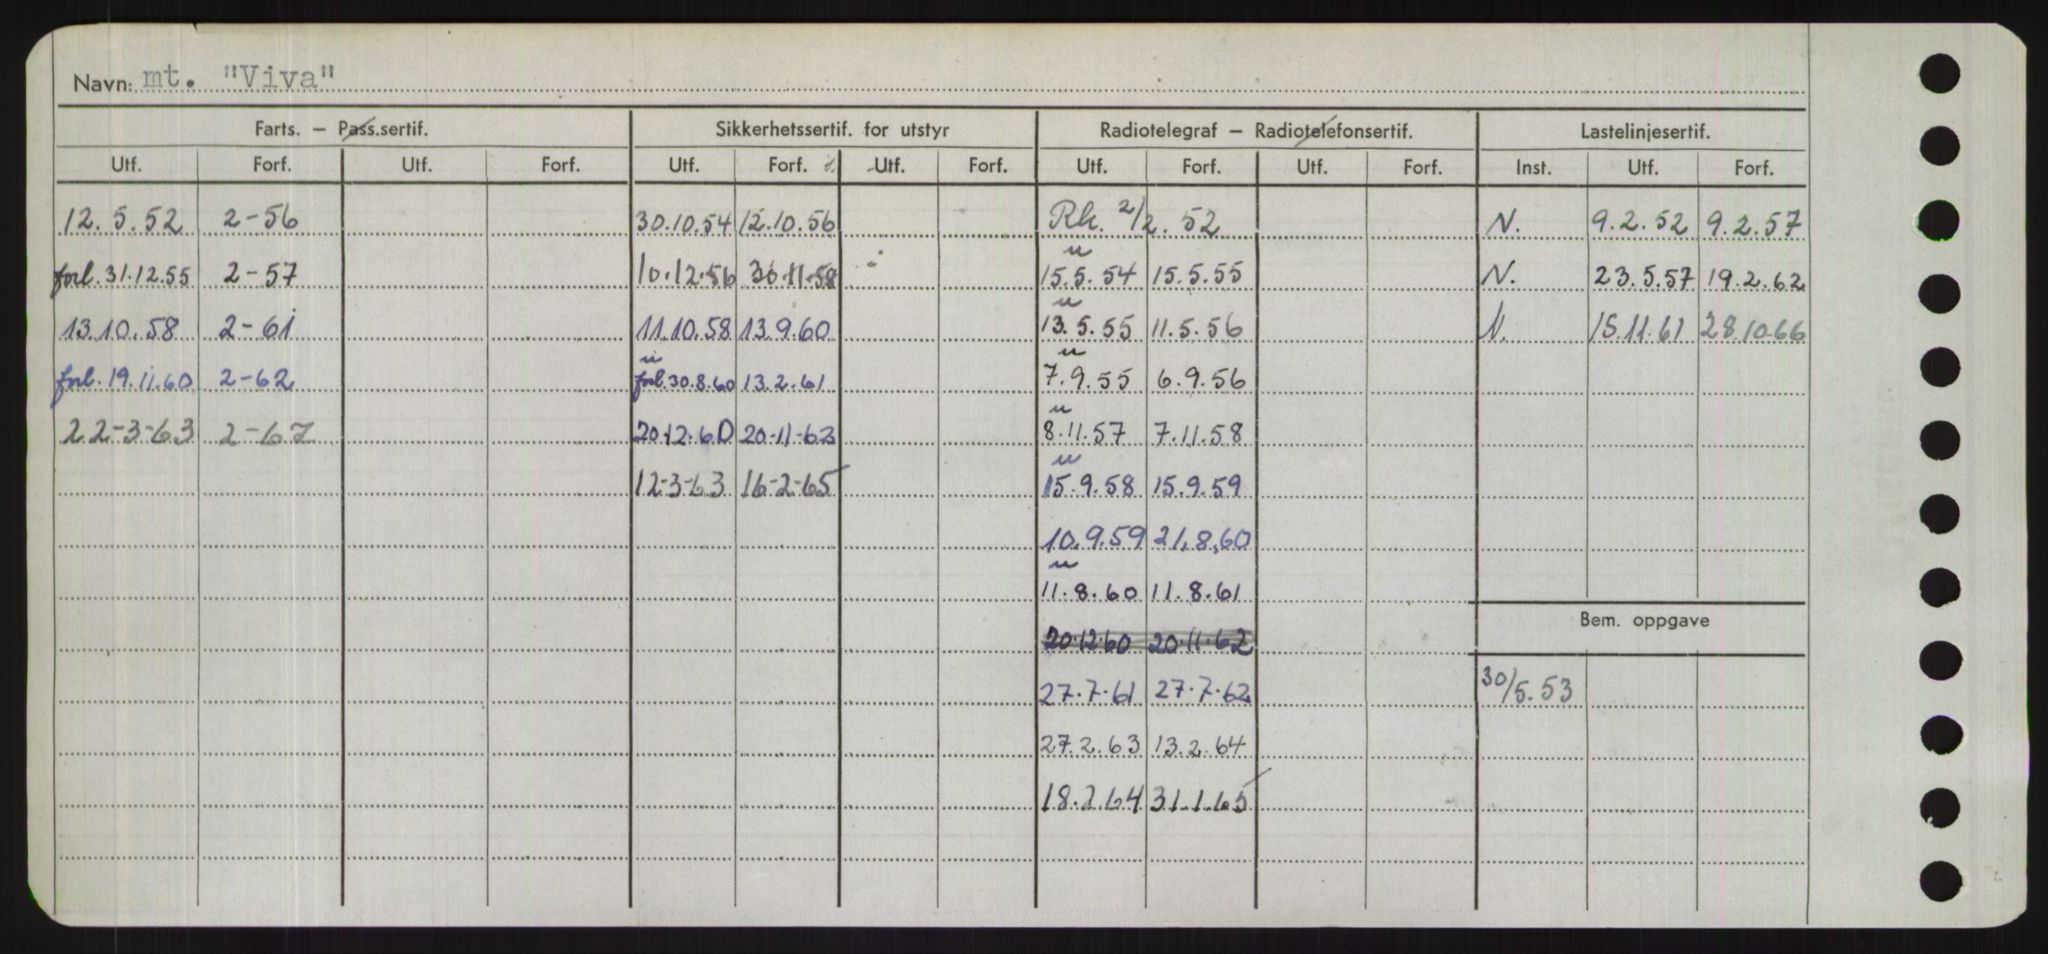 Navn: mt. "Viva"
Farts. – Pass.sertif. Sikkerhetssertif. for utstyr Radiotelegraf – Radiotelefonsertif. Lastelinjesertif.
Utf. Forf. Utf. Forf. Utf. Forf. Utf. Forf. Utf. Forf. Utf. Forf. Inst. Utf. Forf.
12.5.52 2-56 30.10.54 12.10.56 Rk. 2/2.52 N. 9.2.52 9.2.57
forl. 31.12.55 2-57 10.12.56 30.11.58 15.5.54 15.5.55 N. 23.5.57 19.2.62
13.10.58 2-61 11.10.58 13.9.60 13.5.55 11.5.56 N. 15.11.61 28.10.66
forl. 19.11.60 2-62 forl. 30.8.60 13.2.61 7.9.55 6.9.56
22-3-63 2-67 20.12.60 20-11-62 8.11.57 7.11.58
12-3-63 16-2-65 15.9.58 15.9.59
10.9.59 21.8.60
11.8.60 11.8.61
Bem. oppgave
20.12.60 20.11.62
27.7.61 27.7.62 30/5.53
27.2.63 13.2.64
18.2.64 31.1.65